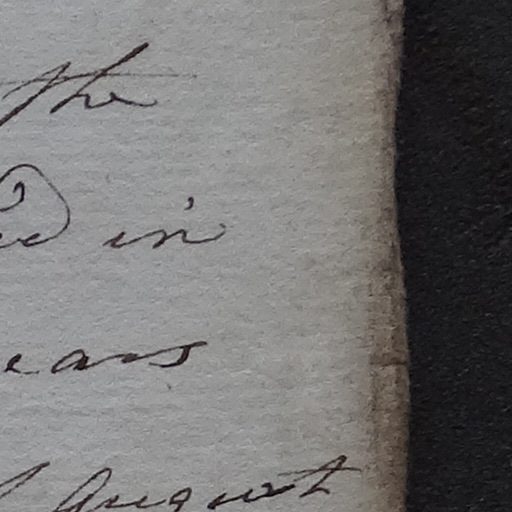 the
in
ears
August